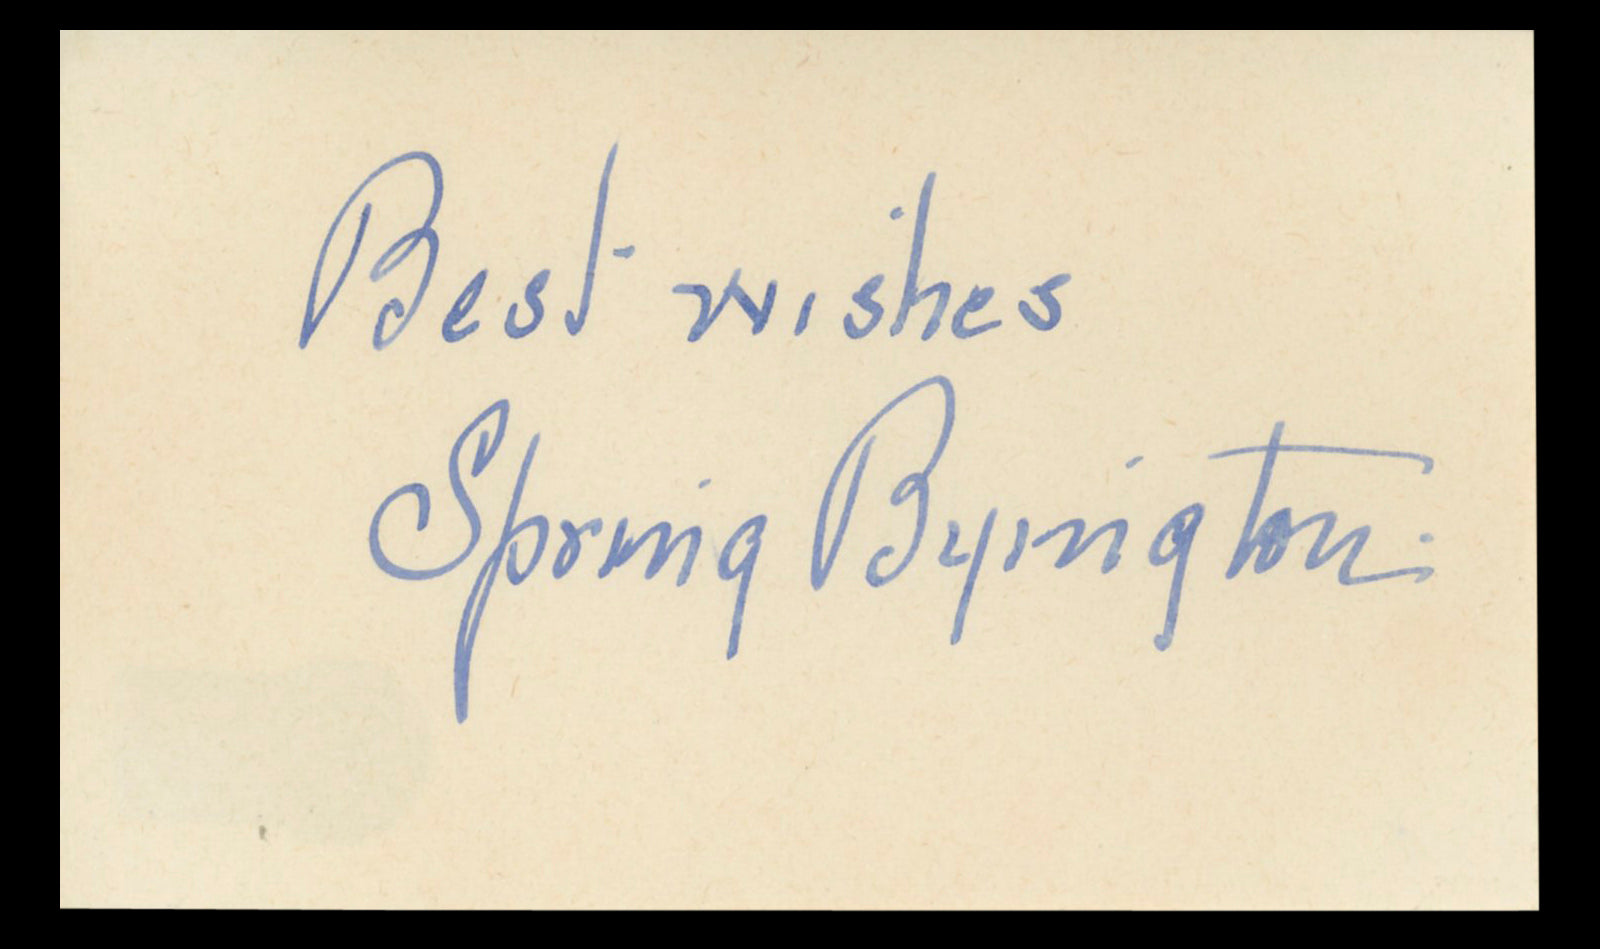 Best wishes
Spring Byington.